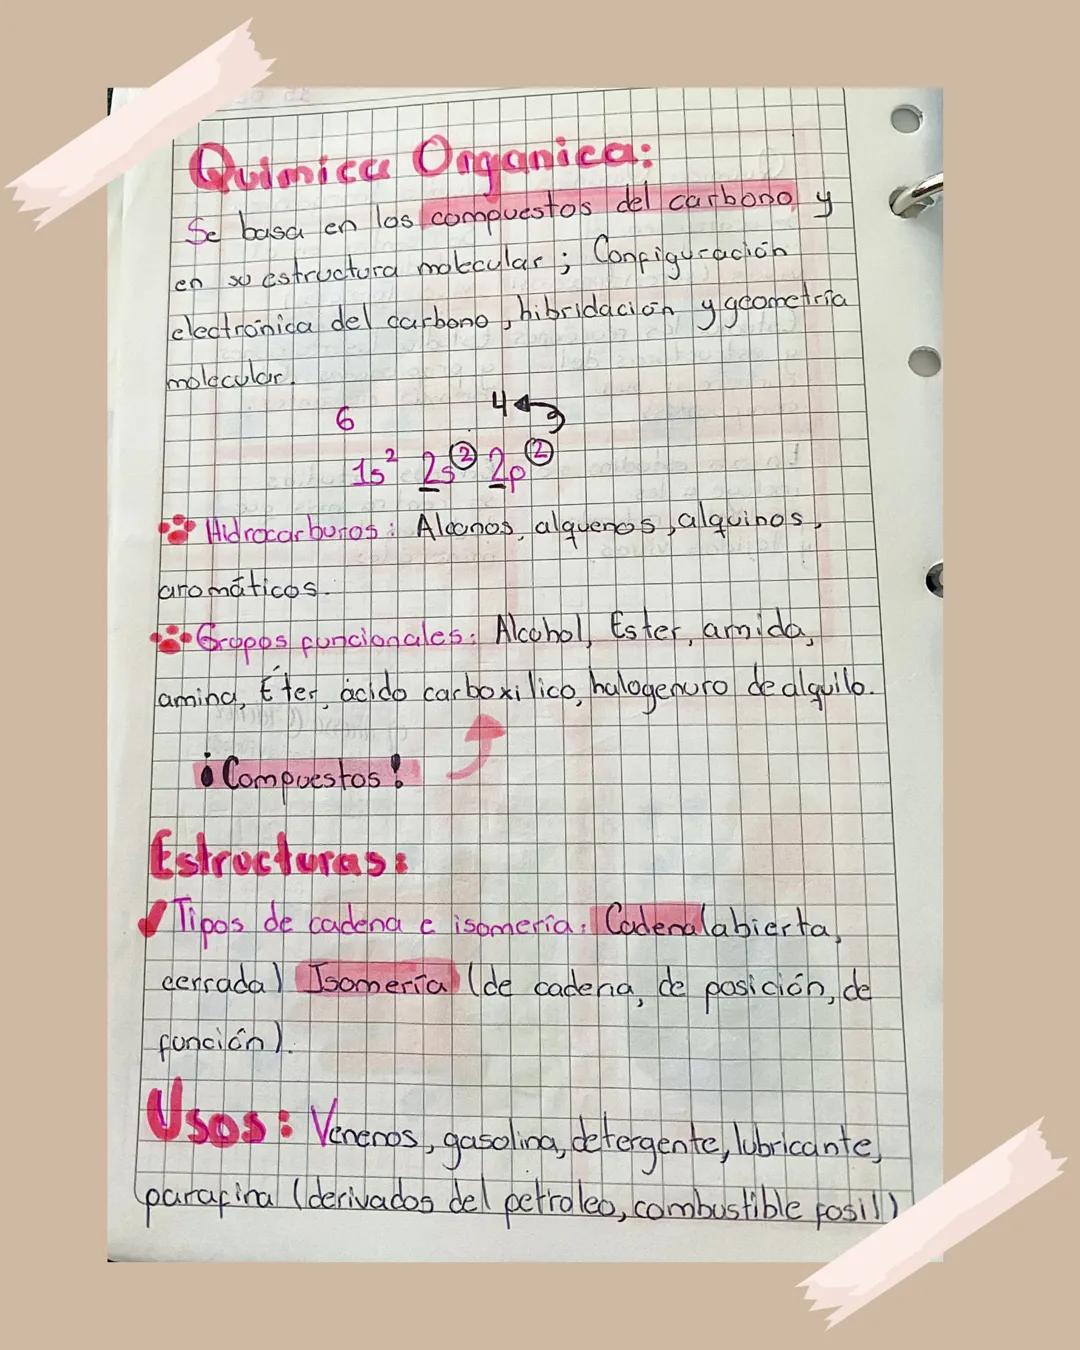 Quimica Organica:
Se basa en los compuestos del carbono y
en su estructura molecular; Configuración
electrónica del carbono, hibridación y geometría
molecular.
6 4
1s² 2s² 2p²
Hidrocarburos: Alcanos, alquenos, alquinos,
aromáticos.
Grupos funcionales: Alcohol, Ester, amida,
amina, Éter, ácido carboxilico, halogenuro de alquilo.
¡Compuestos!
Estructuras:
Tipos de cadena e isomería: Cadena(abierta,
cerrada) Isomería (de cadena, de posición, de
función).
Usos: Venenos, gasolina, detergente, lubricante,
parafina (derivados del petroleo, combustible fosil)